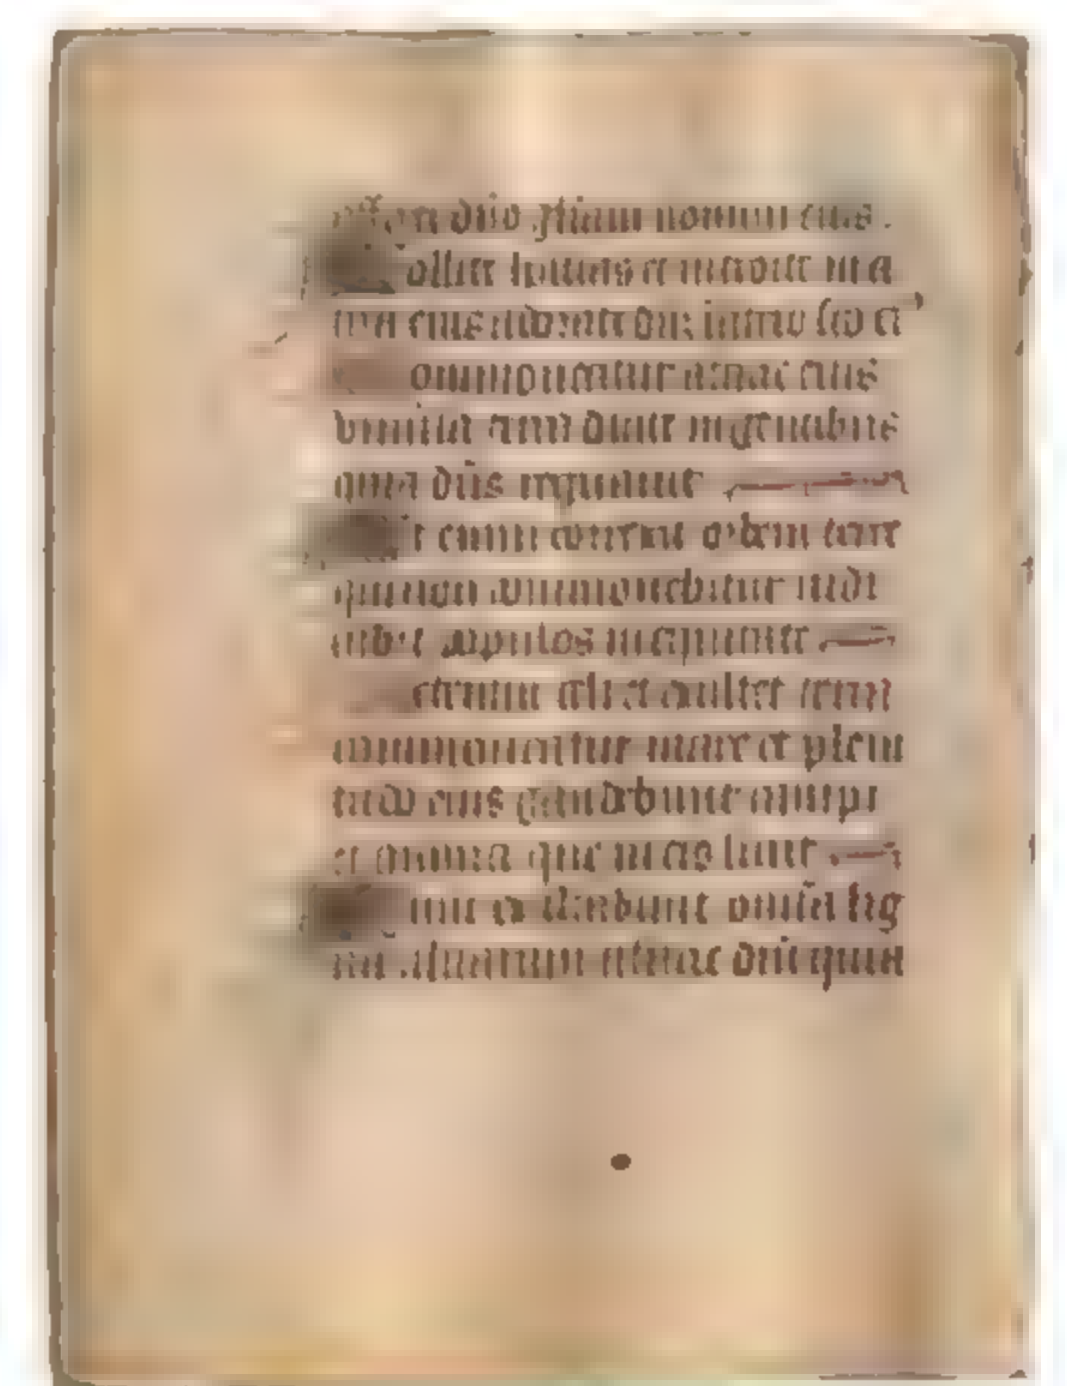 dño gliam nomini eius.
ollite hostias et introite in a
tria eius adorate dnm in atrio sco ei
ommoueatur a facie eius
uniuersa terra dicite in gentibus
quia dñs regnauit
t enim correxit orbem terre
qui non commouebitur iudi
cabit populos in equitate
etentur celi et exultet terra
commoueatur mare et pleni
tudo eius gaudebunt campi
et omnia que in eis sunt
unc exultabunt omĩa lig
na siluarum a facie dñi quia